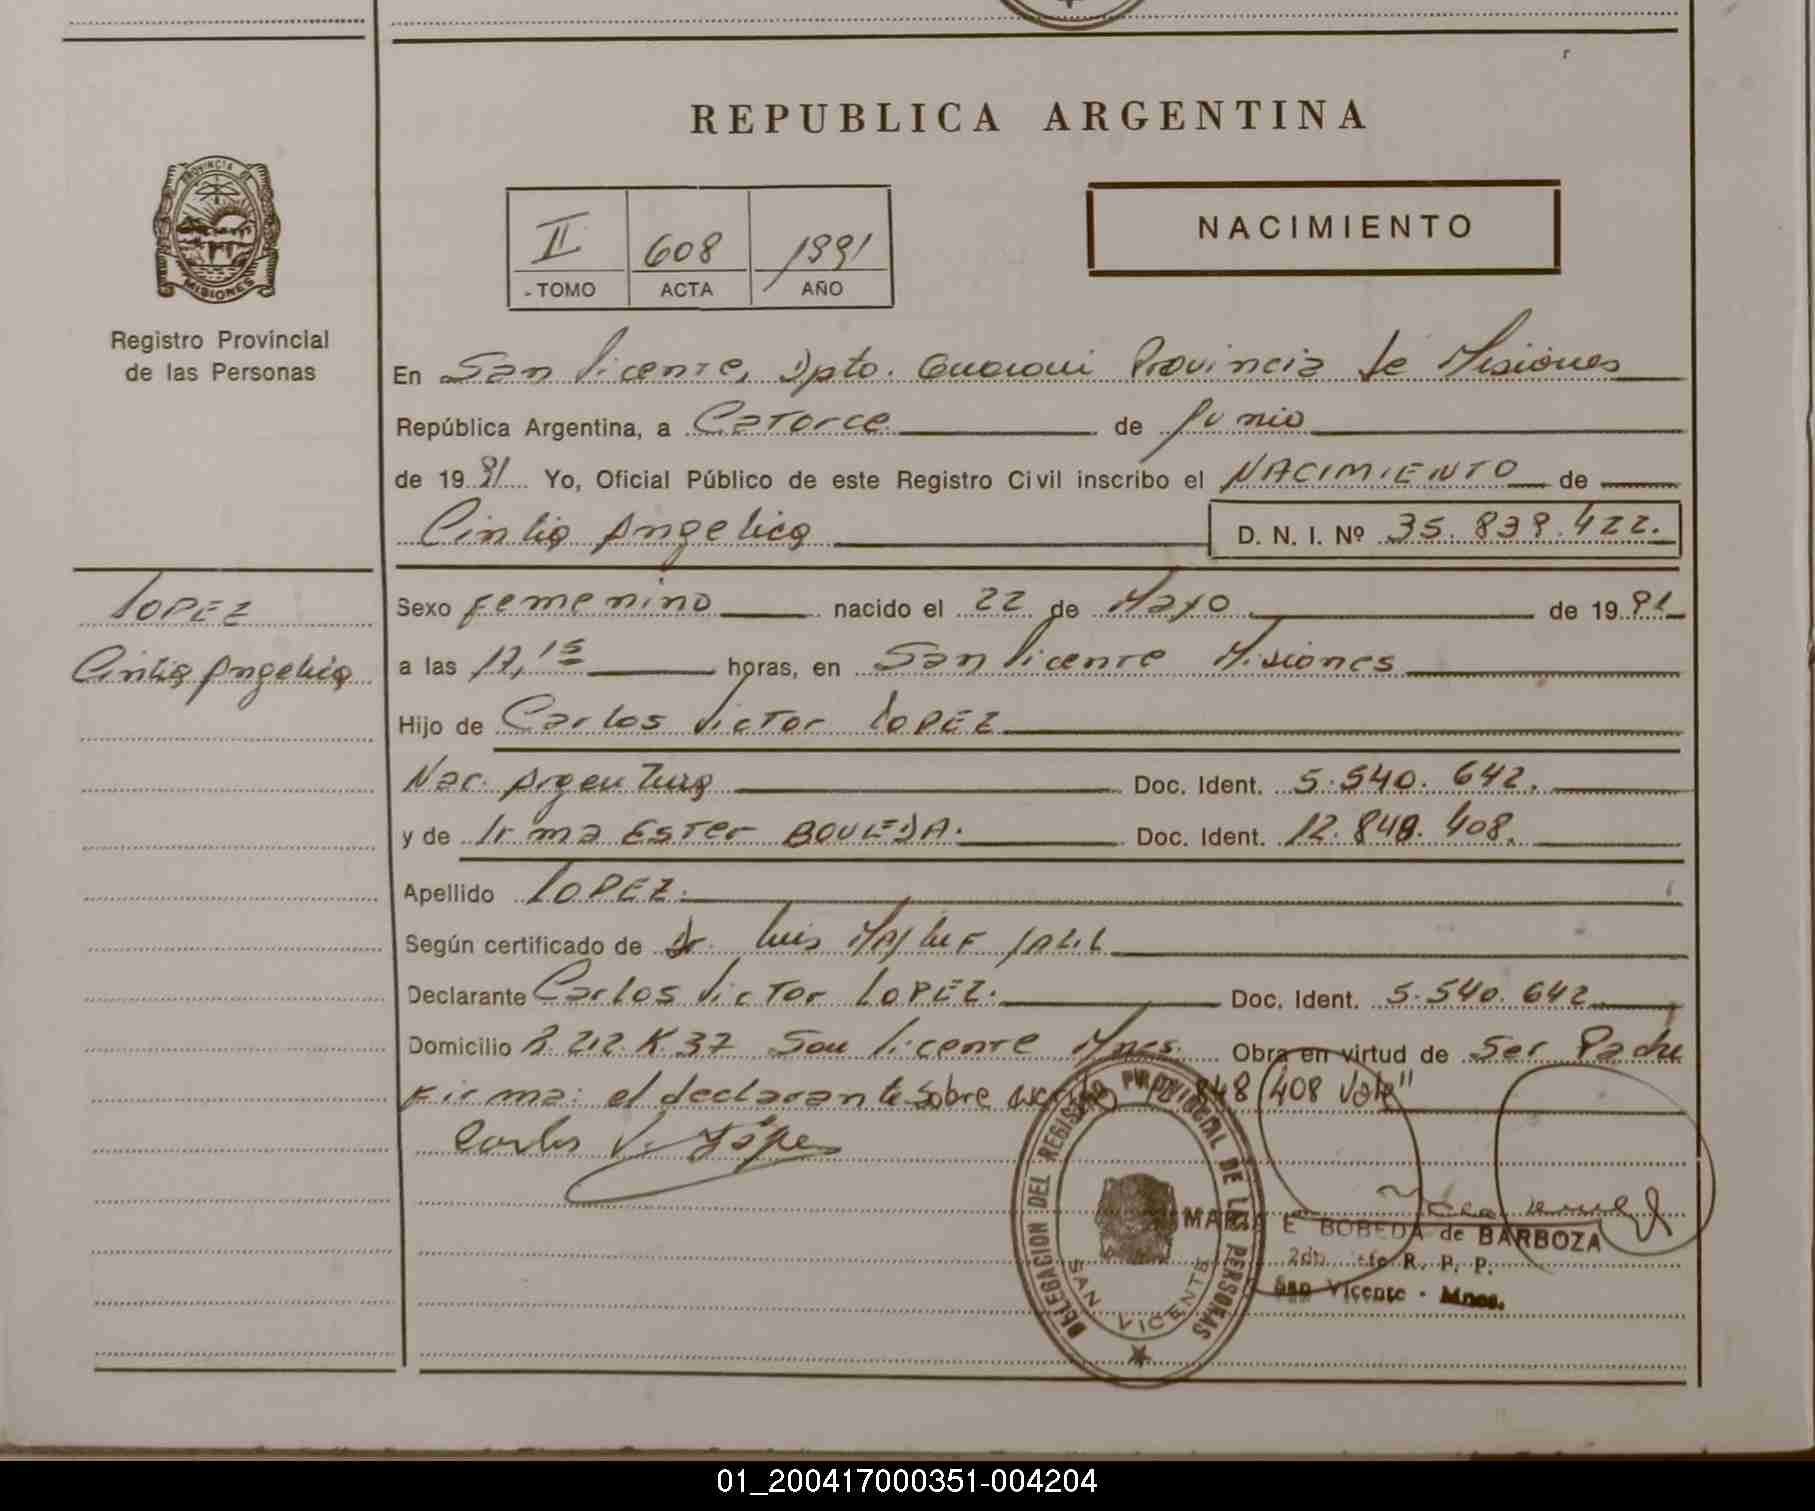 REPUBLICA ARGENTINA
PROVINCIA DE
MISIONES
Registro Provincial
de las Personas
II 608 1991
TOMO ACTA AÑO
NACIMIENTO
En San Vicente, Dpto. Guarani Provincia de Misiones
República Argentina, a Catorce de Junio
de 1991 Yo, Oficial Público de este Registro Civil inscribo el NACIMIENTO de
Cintia Angelica D. N. I. Nº 35.839.422.
LOPEZ
Cintia Angelica
Sexo femenino nacido el 22 de Mayo de 1991
a las 17,15 horas, en San Vicente Misiones
Hijo de Carlos Victor LOPEZ
Nac. Argentina Doc. Ident. 5.540.642.
y de Irma Ester BOVEDA. Doc. Ident. 12.848.408.
Apellido LOPEZ.
Según certificado de Dr. Luis
Declarante Carlos Victor LOPEZ. Doc. Ident. 5.540.642
Domicilio R 212 K 37 San Vicente Mnes. Obra en virtud de Ser Padre
Firma: el declarante Sobre escrito 848 408 Vale"
Carlos V. López
DELEGACION DEL REGISTRO PROVINCIAL DE LAS PERSONAS
SAN VICENTE
MARIA E BOBEDA de BARBOZA
R. P. P.
San Vicente - Mnes.
01_200417000351-004204